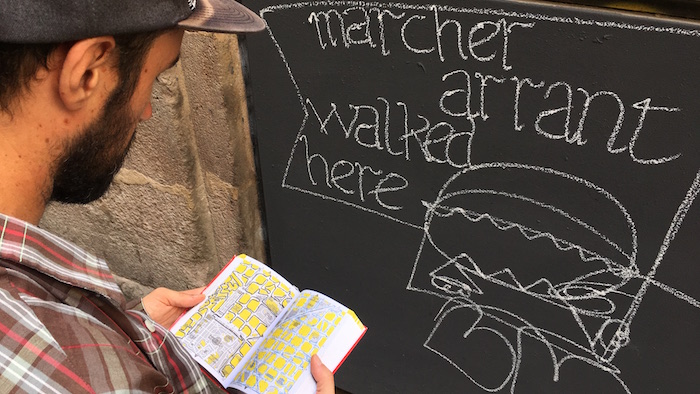 marcher
arrant
walked
here